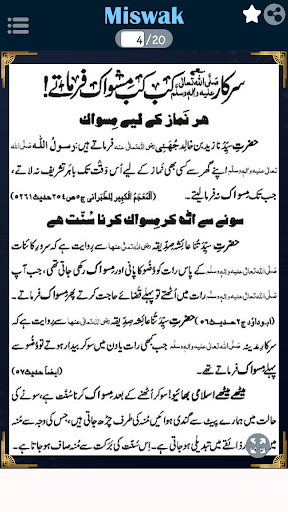 Miswak
4/20
سرکار صلَّی اللہ تعالٰی علیہ واٰلہٖ وسلَّم کب کب مسواک فرماتے!
ہر نماز کے لیے مسواک
حضرتِ سیِّدُنا زید بن خالد جُہَنِی رضی اللہ تعالٰی عنہ فرماتے ہیں: رسولُ اللہ صلَّی اللہ
تعالٰی علیہ واٰلہٖ وسلَّم اپنے گھر سے کسی بھی نَماز کے لیے اُس وَقْت تک باہَر تشریف نہ لاتے،
جب تک مِسواک نہ فرما لیتے۔ (اَلْمُعْجَمُ الْکبِیْر لِلطَّبَرانی ج۵ ص۲۵۴ حدیث ۵۲۶۱)
سونے سے اُٹھ کر مِسواک کرنا سُنّت ھے
حضرتِ سیِّدَتُنا عائشہ صِدّیقہ رضی اللہ تعالٰی عنہا سے روایت ہے کہ سرورِ کائنات
صلَّی اللہ تعالٰی علیہ واٰلہٖ وسلَّم کے پاس رات کو وُضُو کا پانی اور مِسواک رکھی جاتی تھی، جب آپ
صلَّی اللہ تعالٰی علیہ واٰلہٖ وسلَّم رات میں اُٹھتے تو پہلے قضائے حاجت کرتے پھر مِسواک فرماتے۔
(ابوداوٗد ج۱ حدیث ۵۶) حضرتِ سیِّدَتُنا عائشہ صِدّیقہ رضی اللہ تعالٰی عنہا سے روایت ہے کہ
سرکارِ مدینہ صلَّی اللہ تعالٰی علیہ واٰلہٖ وسلَّم جب بھی رات یا دن میں سو کر بیدار ہوتے تو وُضُو سے
پہلے مِسواک فرماتے تھے۔ (اَیضاً حدیث ۵۷)
میٹھے میٹھے اسلامی بھائیو! سو کر اُٹھنے کے بعد مِسواک کرنا سُنّت ہے، سونے کی
حالت میں ہمارے پیٹ سے گندی ہوائیں مُنہ کی طرف چڑھ جاتی ہیں، جس کی وجہ سے مُنہ
ذائقے میں تبدیلی ہو جاتی ہے۔ اِس سُنّت کی بَرَکت سے مُنہ صاف ہو جاتا ہے۔